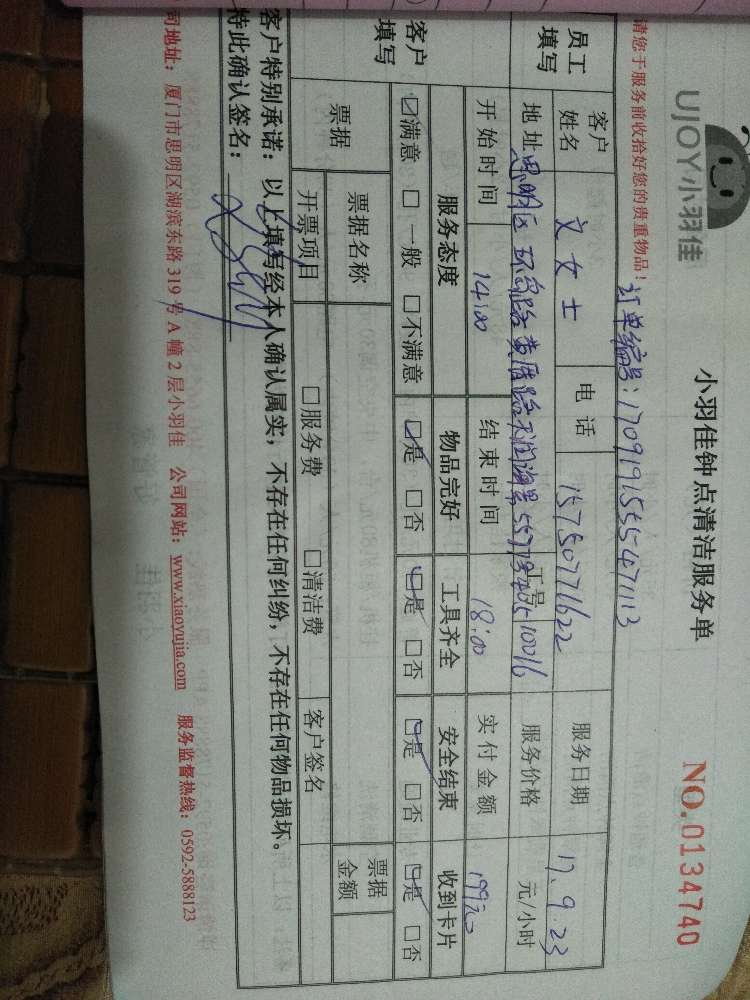 UJOY小羽佳
小羽佳钟点清洁服务单
NO.0134740
请您于服务前收拾好您的贵重物品！
订单编号：1709191555471113
员工填写
客户姓名
文女士
电话
15750771622
服务日期
17.9.23
地址
思明区环岛路黄厝路天润海景
工号
10016
服务价格
元/小时
开始时间
14:00
结束时间
18:00
实付金额
199元
客户填写
服务态度
物品完好
工具齐全
安全结束
收到卡片
☑满意 □一般 □不满意
☑是 □否
☑是 □否
☑是 □否
☑是 □否
票据
票据名称
票据金额
开票项目
□服务费 □清洁费
客户签名
客户特别承诺：以上填写经本人确认属实，不存在任何纠纷，不存在任何物品损坏。
特此确认签名：
司地址：厦门市思明区湖滨东路 319 号 A 幢 2 层小羽佳 公司网站：www.xiaoyujia.com 服务监督热线：0592-5888123